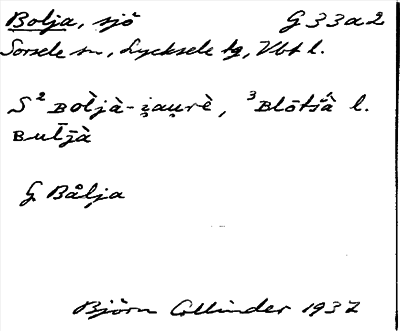 Bolja, sjö G 33a2
Sorsele sn, Lycksele tg, Vbt l.
S ² Bòljà-i̯au̯rè, ³Blōtšà l.
Bull̄jà
G Bålja
Björn Collinder 1937